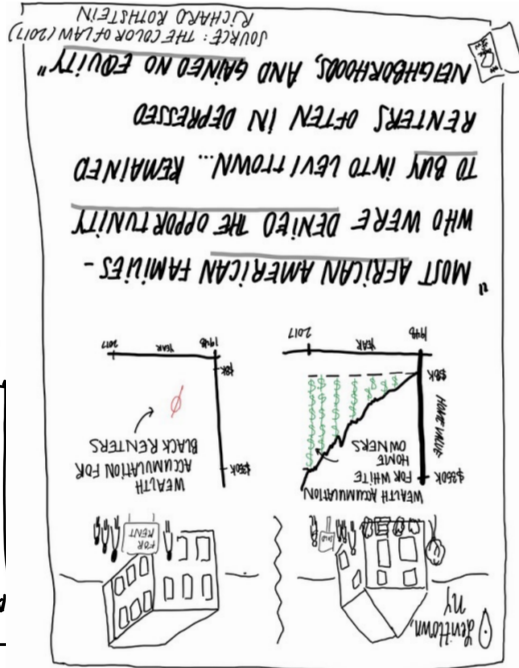 Levittown,
NY
FOR
RENT
WEALTH ACCUMULATION
FOR WHITE
HOME
OWNERS
$350k
HOME VALUE
$8k
1948
YEAR
2017
WEALTH
ACCUMULATION FOR
BLACK RENTERS
$350k
Ø
$8k
1948
YEAR
2017
"MOST AFRICAN AMERICAN FAMILIES -
WHO WERE DENIED THE OPPORTUNITY
TO BUY INTO LEVITTOWN... REMAINED
RENTERS OFTEN IN DEPRESSED
NEIGHBORHOODS, AND GAINED NO EQUITY"
SOURCE: THE COLOR OF LAW (2017)
RICHARD ROTHSTEIN